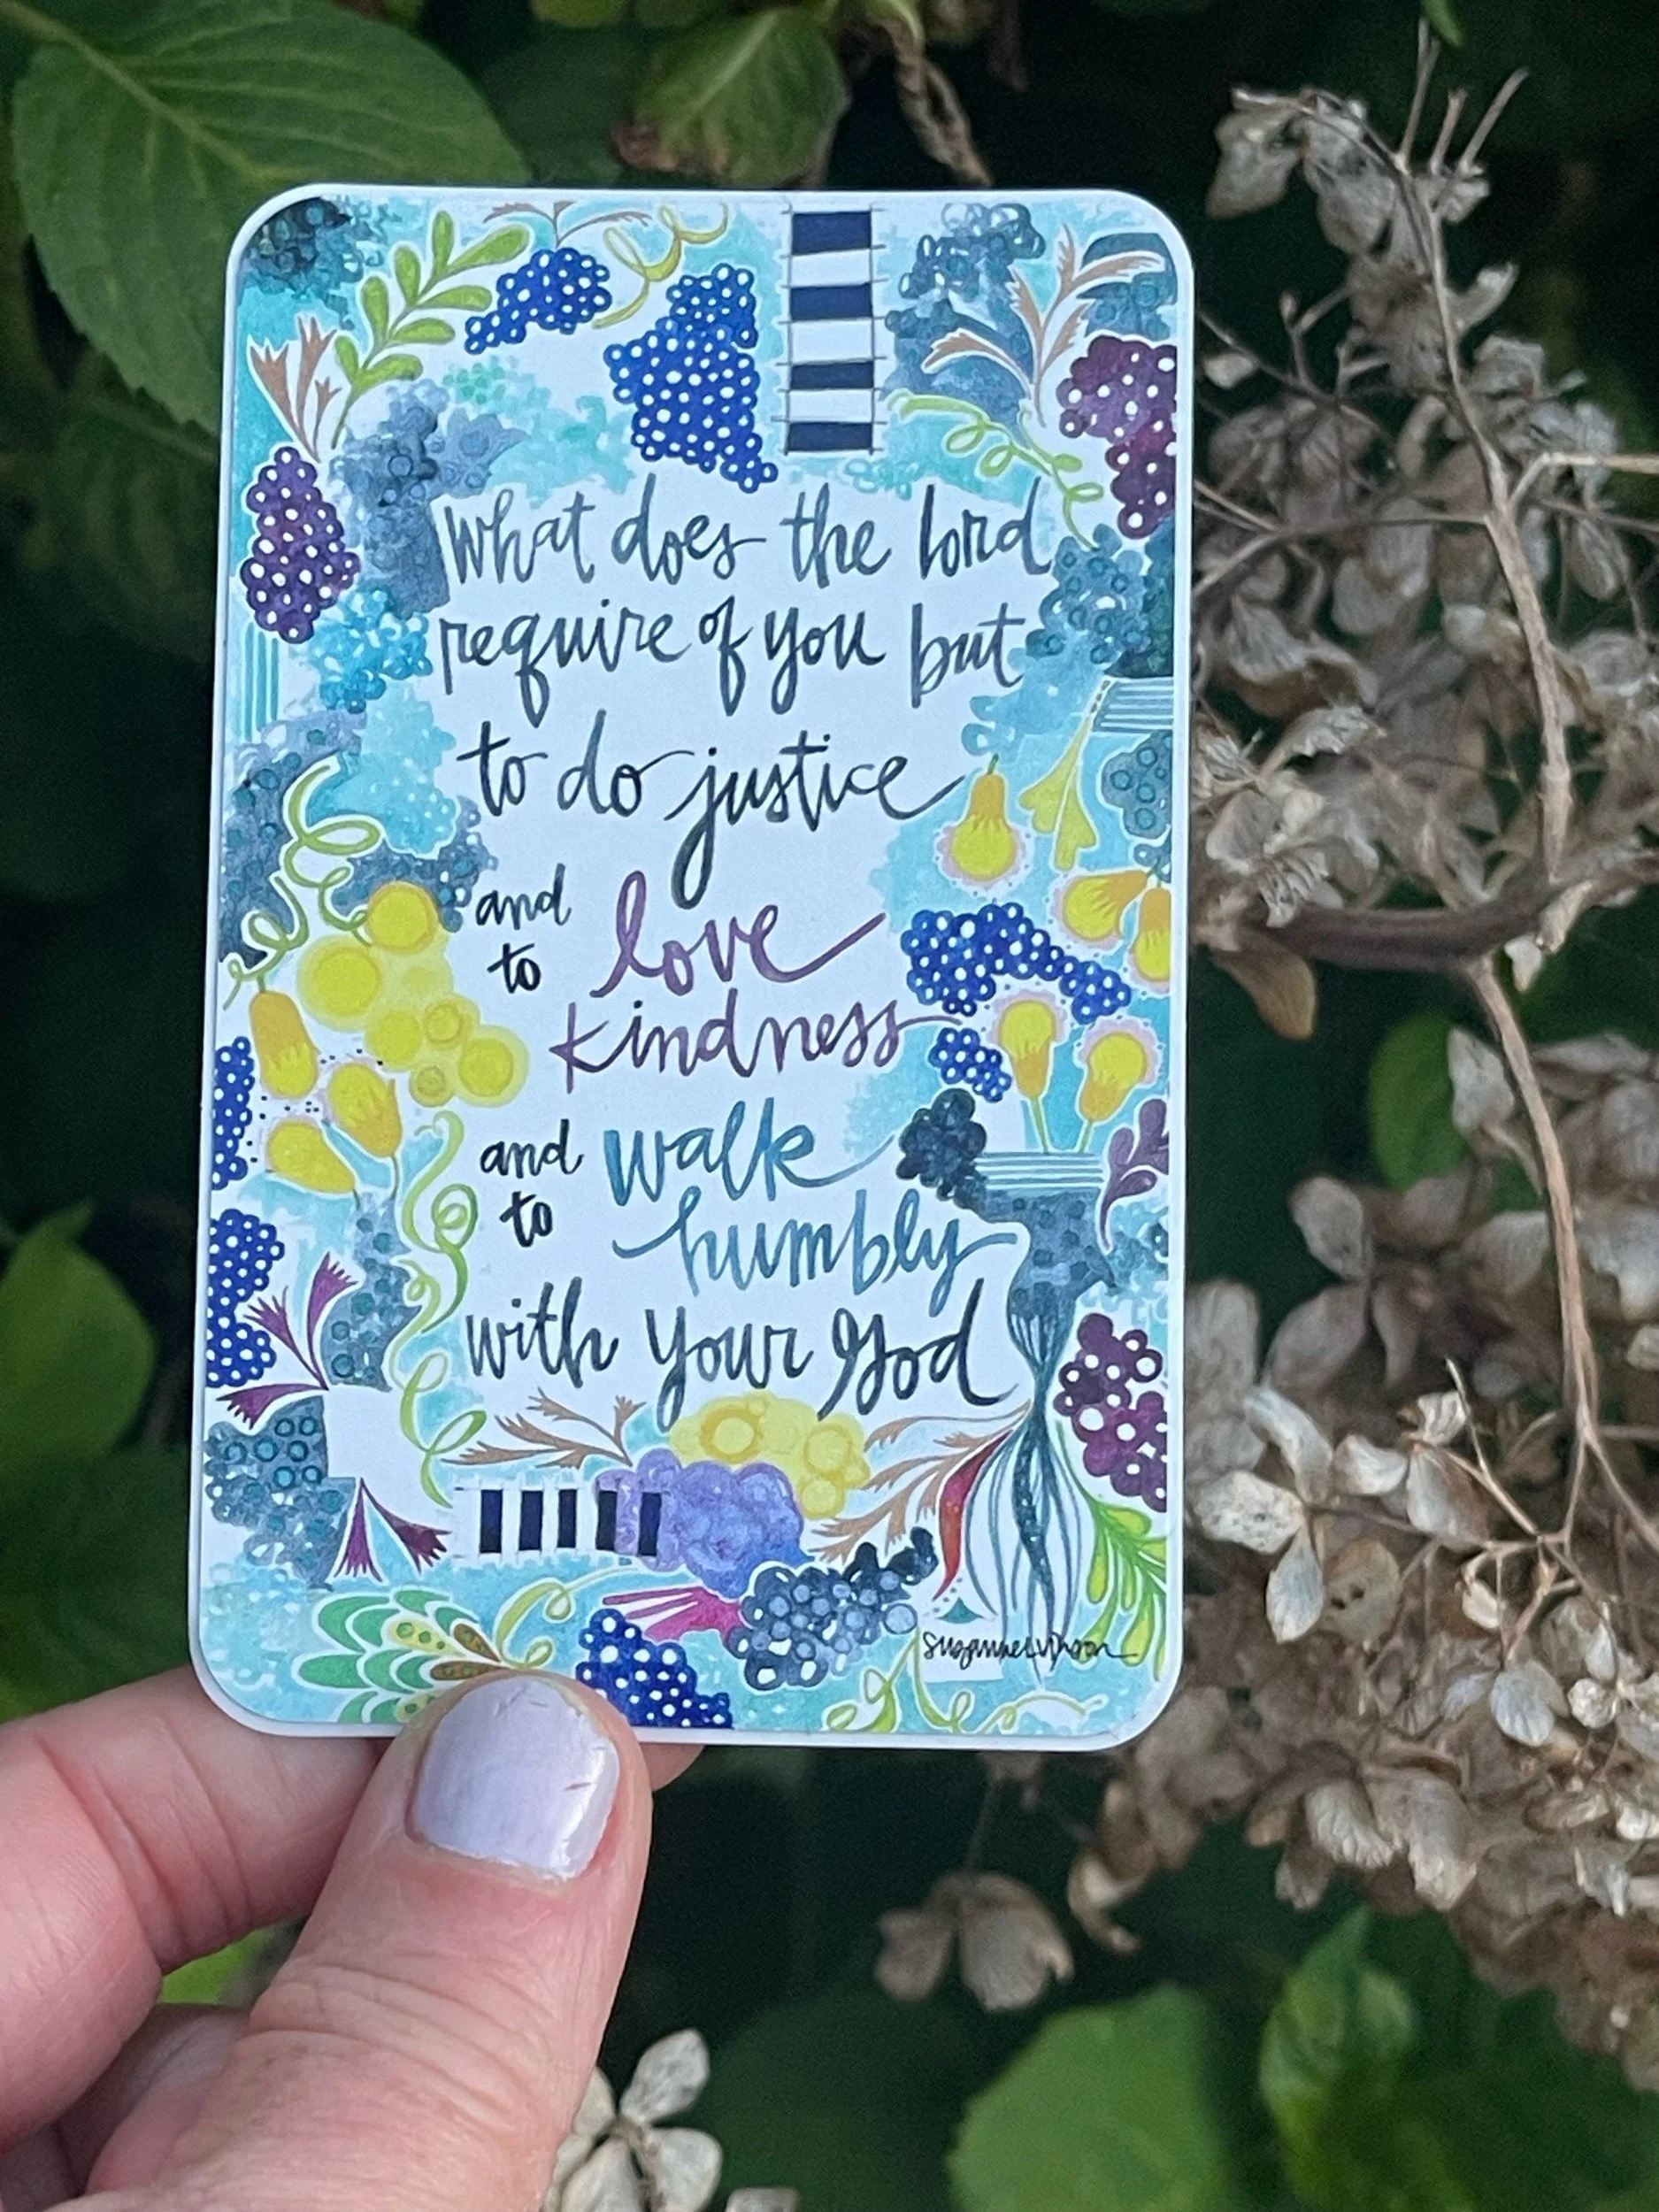 What does the Lord
require of you but
to do justice
and
to love
kindness
and
to walk
humbly
with your God